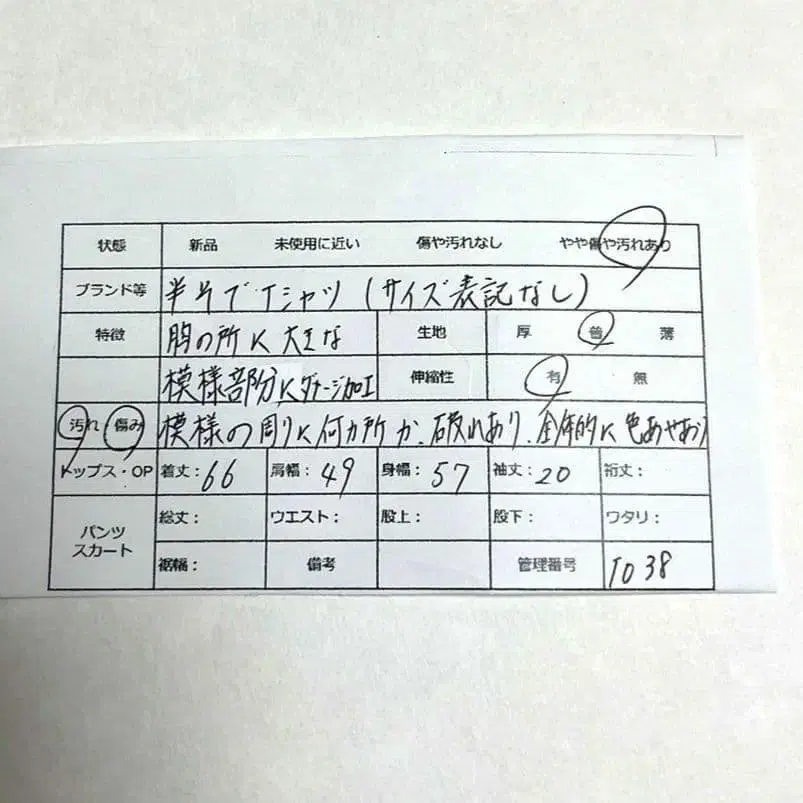 状態 新品 未使用に近い 傷や汚れなし やや傷や汚れあり
ブランド等 半そでTシャツ(サイズ表記なし)
特徴 胸の所に大きな 生地 厚 普 薄
模様部分にダメージ加工 伸縮性 有 無
汚れ・傷み 模様の周りに何カ所か、破れあり、全体的に色あせあり
トップス・OP 着丈:66 肩幅:49 身幅:57 袖丈:20 裄丈:
パンツ スカート 総丈: ウエスト: 股上: 股下: ワタリ:
裾幅: 備考 管理番号 T038